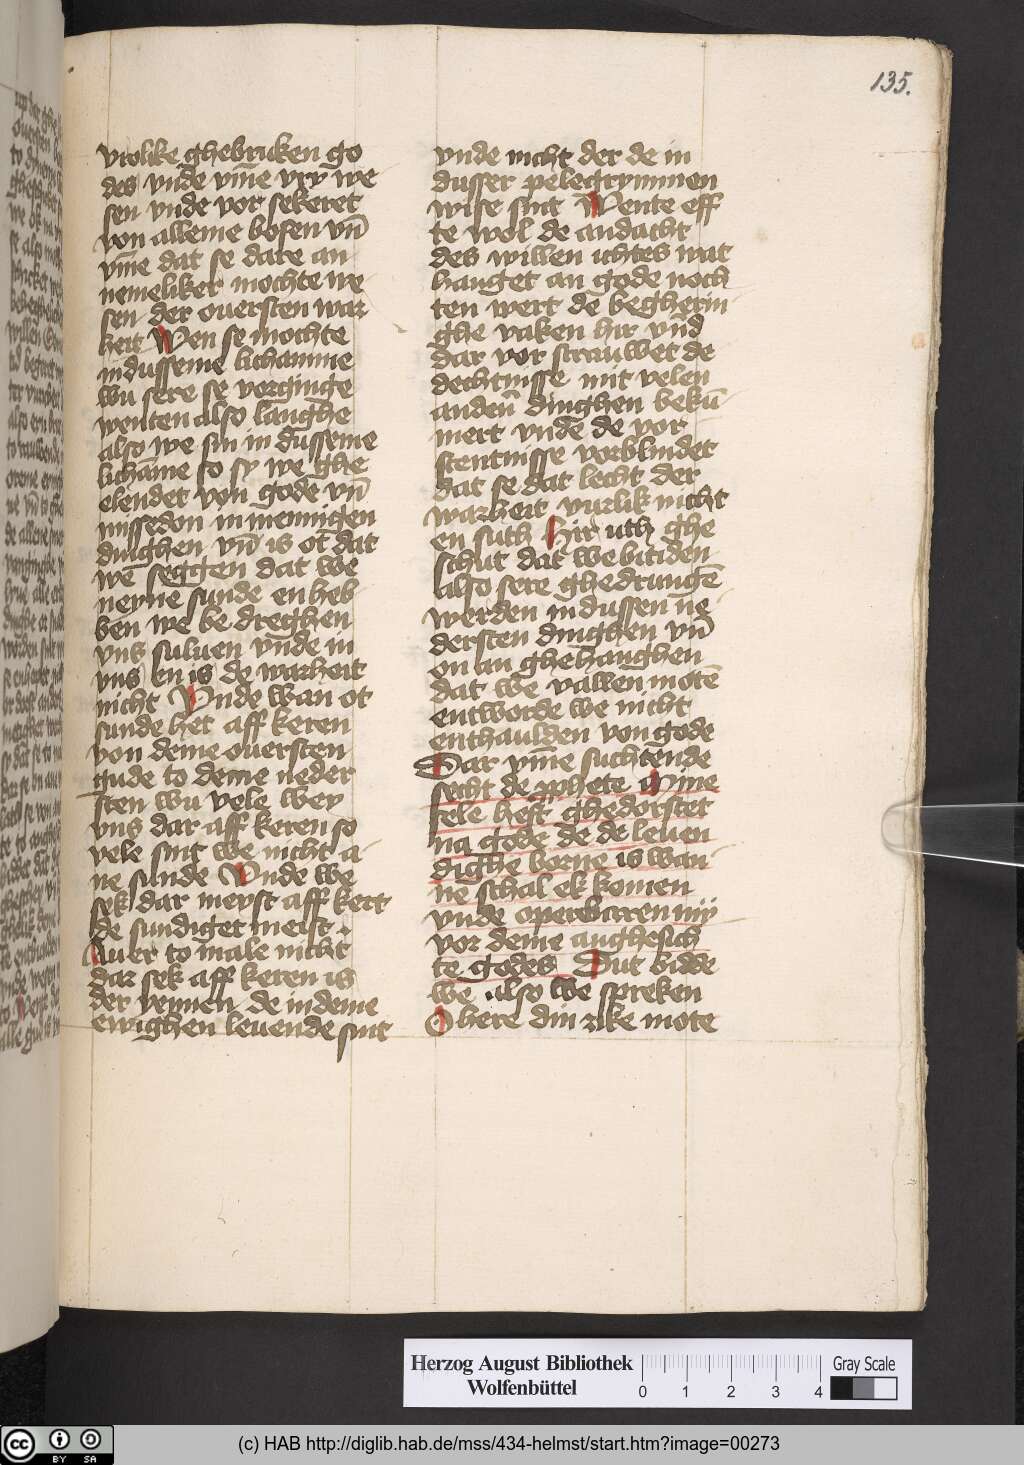 135.
vrolike ghebruken go
des vnde vm̄e vry we
sen vnde vor sekeret
von alleme bosen vn̄
vm̄e dat se dare an
nemeliker mochte we
sen der ouersten war
heit Wen se mochte
in dusseme lichamme
wu sere se vorginge
wenten also langhe
also we sin in dusseme
lichāme so sy we ghe
elendet von gode vn̄
missedon in mennigen
dinghen vn̄ is ot dat
we seggen dat we
neyne sunde en heb
ben we be dreghen
vns suluen vnde in
vns en is de warheit
nicht Vnde wan ot
sunde het aff keren
von deme ouersten
gude to deme neder
sten wu vele wey
vns dar aff keren so
vele sint we nicht a
ne sunde Vnde we
sek dar meyst aff kert
de sundiget meist
Auer to male nicht
dar sek aff keren is
der yennen de in deme
ewighen leuende sint
vnde nicht der de in
dusser pelegrymmen
wise sint Wente eff
te wol de andacht
des willen ichtes wat
hanget an gode noch
ten wert de begherin
ghe vaken hir vn̄d
dar vor strauwet de
dechtnisse mit velen
anden̄ dinghen bekū
mert vnde de vor
stentnisse vorblindet
dat se dat lecht der
warheit vurlik nicht
en suth Hir uth ghe
schut dat we bitiden
also sere ghedrungē
werden in dussen ne
dersten dinghen vn̄
on an ghehanghen
dat we vallen motē
entworde we nicht
enthaulden von gode
Dar vm̄e suchtende
secht de pphete Mine
sele heft ghedorstet
na gode de de leuen
dighe borne is wan
ne schal ek komen
vnde openbaren mij
vor deme anghesich
te godes Dut bidde
we also we spreken
O here din rike mote
Herzog August Bibliothek
Wolfenbüttel
0 1 2 3 4
Gray Scale
CC BY SA
(c) HAB http://diglib.hab.de/mss/434-helmst/start.htm?image=00273